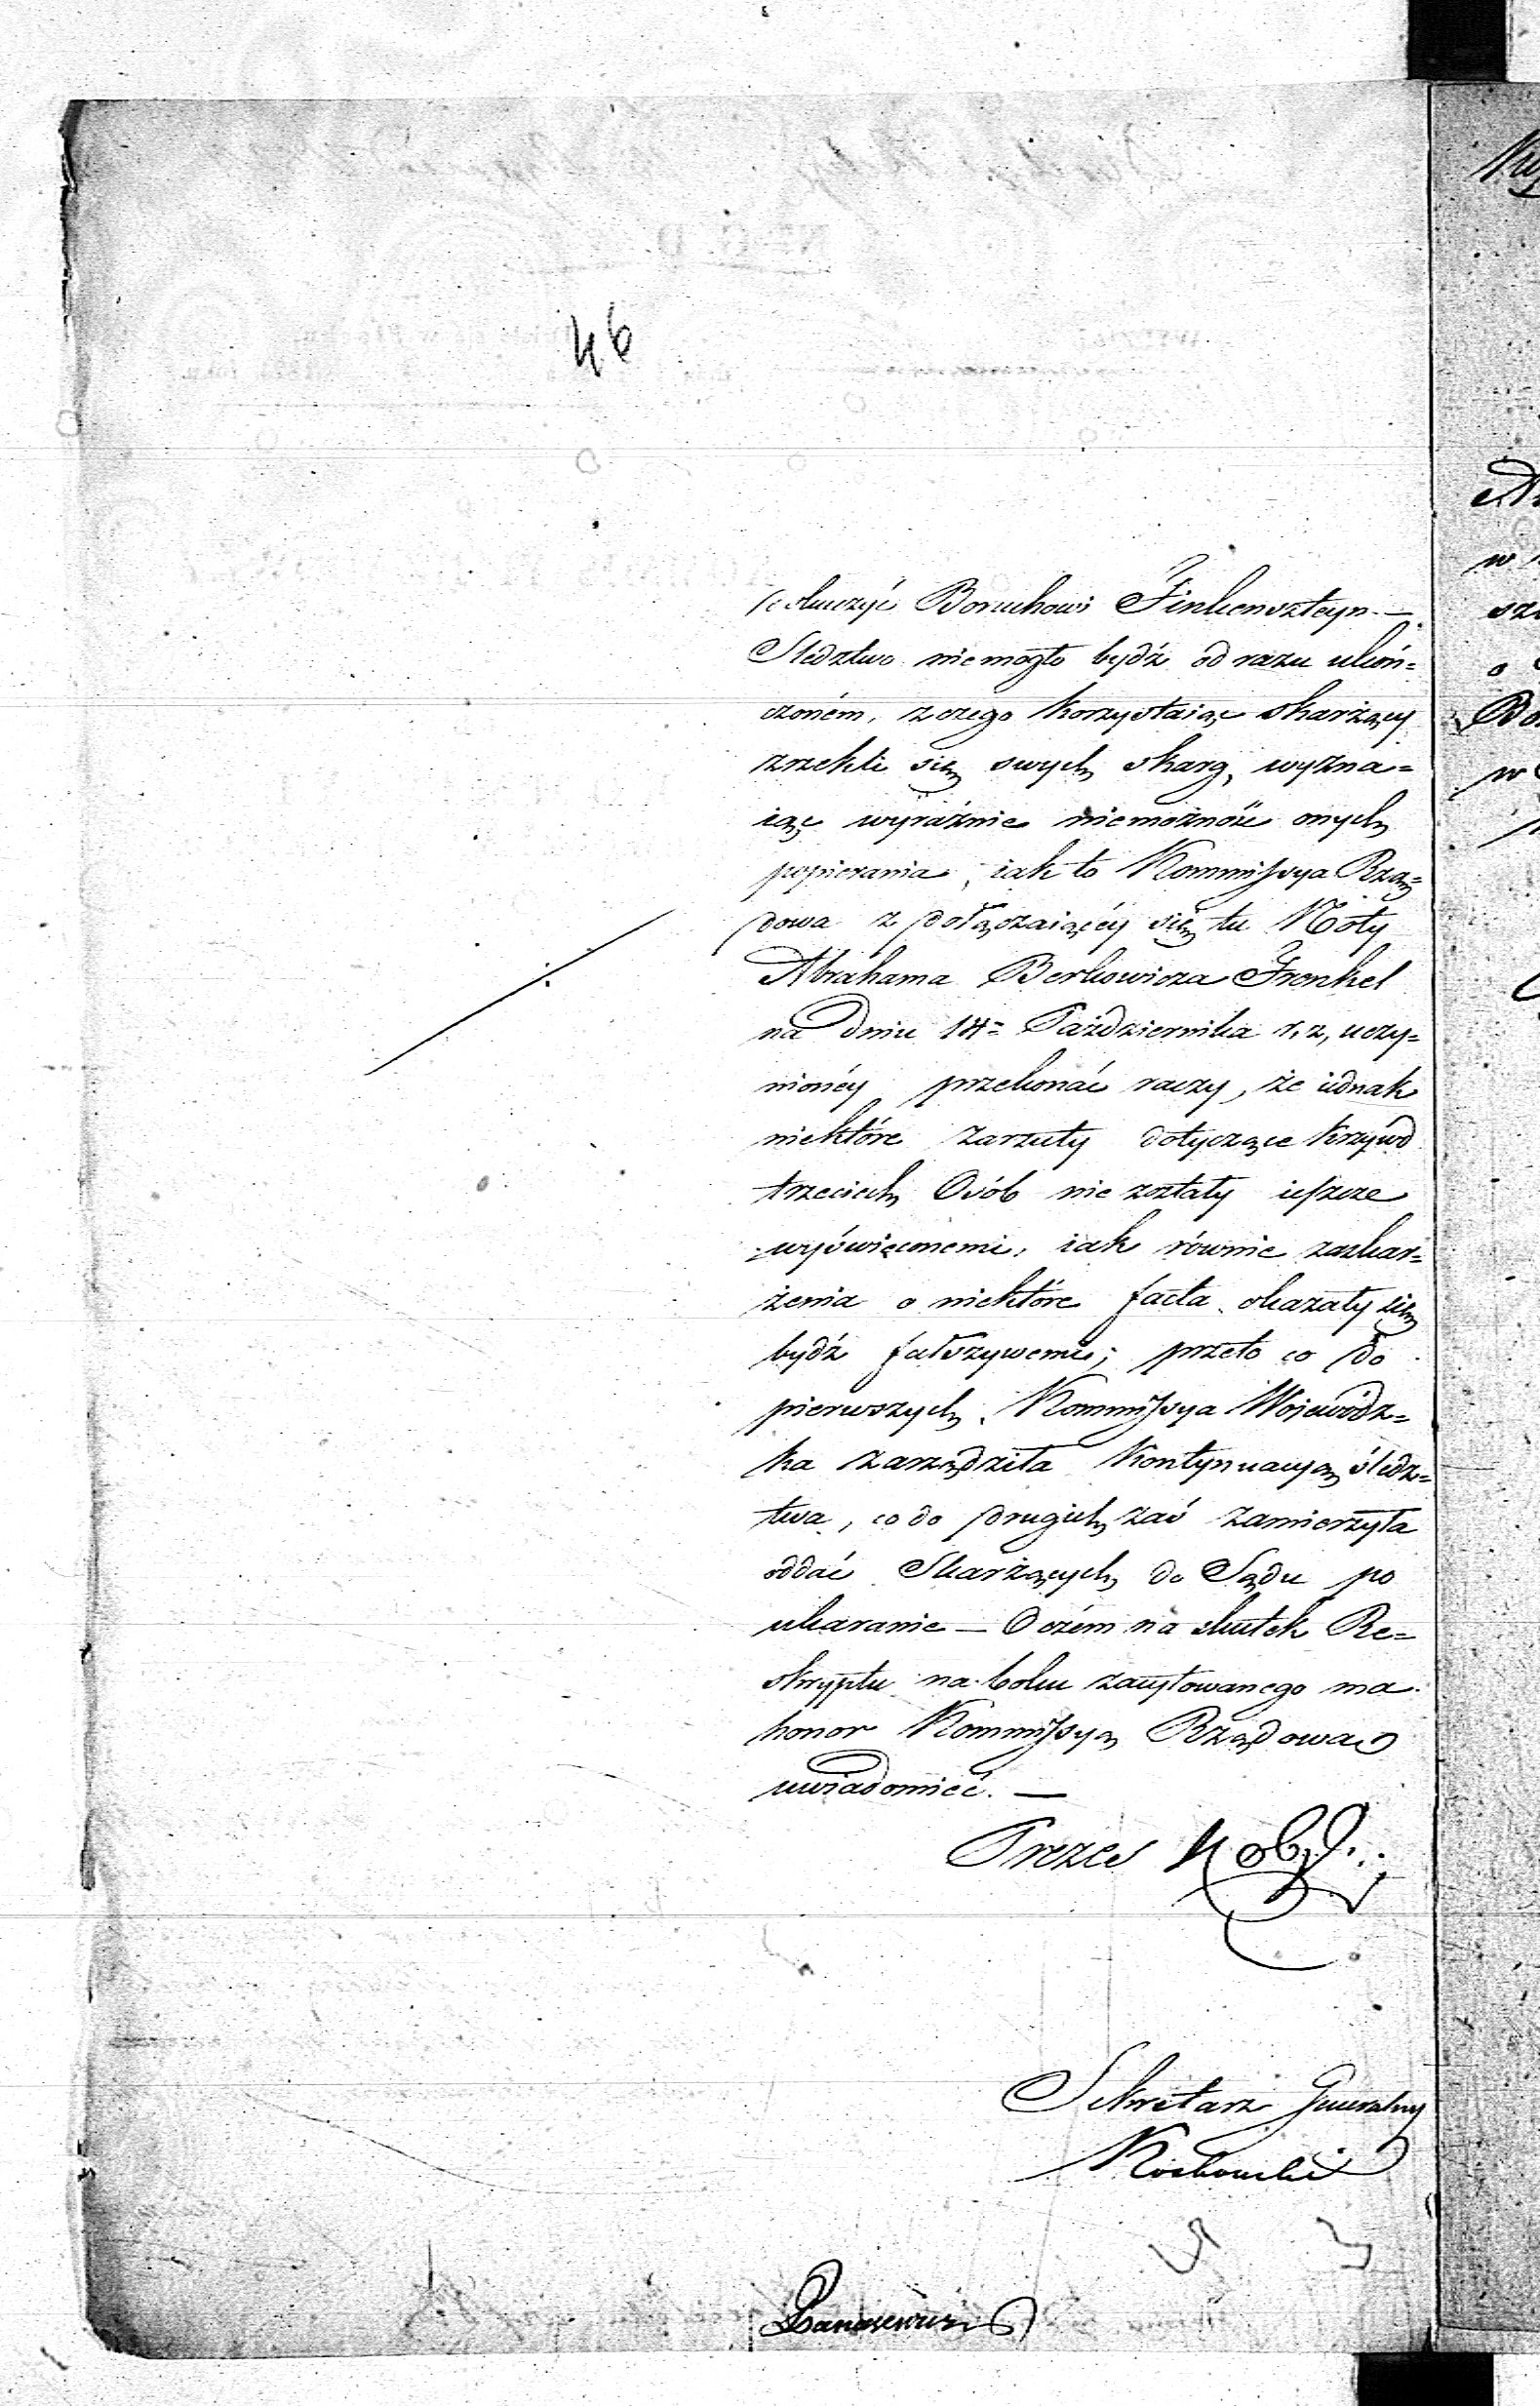 46
służyć Boruchowi Finkenszteyn. —
Sledztwo niemogło bydź od razu ukoń=
czoném, z czego korzystaiąc skarżący
zrzekli się swych skarg, wyzna=
iąc wyraźnie niemożność onych
popierania, iak to Kommissya Rzą=
dowa z dołączaiącéy się tu Noty
Abrahama Berkowicza Frenkel
na dniu 14= Października r. z, uczy=
nionéy przekonać raczy, że iednak
niektóre zarzuty dotyczące krzywd
trzecich Osób nie zostały ieszcze
wyświęconemi, iak równie zaskar=
żenia o niektóre facta okazały się
bydź fałszywemi; przeto co do
pierwszych, Kommissya Wojewódz=
ka zarządziła kontynuacyą śledz=
twa, co do drugich zaś zamierzyła
oddać Skarżących do Sądu po
ukaranie — O czém na skutek Re=
skryptu na boku zacytowanego ma
honor Kommissyą Rządową
uwiadomić. —
Prezes
Sekretarz Generalny